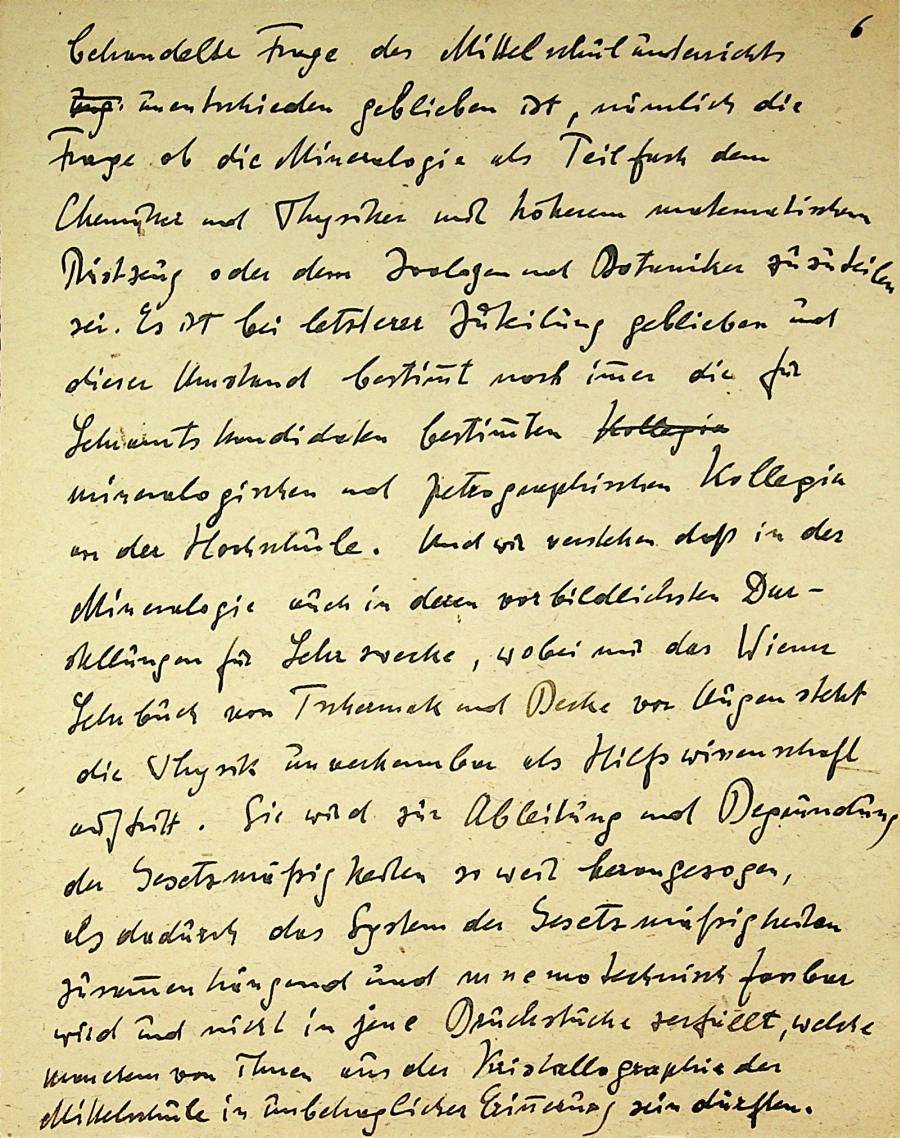 6
behandelte Frage des Mittelschulunterrichts
ung. unentschieden geblieben ist, nämlich die
Frage ob die Mineralogie als Teilfach dem
Chemiker und Physiker mit höherem mathematischem
Rüstzeug oder dem Zoologen und Botaniker zuzuteilen
sei. Es ist bei letzterer Zuteilung geblieben und
dieser Umstand bestim̅t noch im̅er die für
Lehramtskandidaten bestim̅ten Kollegia
mineralogischen und petrographischen Kollegia
an der Hochschule. Und wir verstehen daß in der
Mineralogie auch in deren vorbildlichsten Dar-
stellungen für Lehrzwecke, wobei mir das Wiener
Lehrbuch von Tschermak und Becke vor Augen steht
die Physik unverkennbar als Hilfswissenschaft
auftritt. Sie wird zur Ableitung und Begründung
der Gesetzmäßigkeiten so weit herangezogen,
als dadurch das System der Gesetzmäßigkeiten
zusam̅enhängend und mnemotechnisch fassbar
wird und nicht in jene Bruchstücke zerfällt, welche
manchem von Ihnen aus der Kristallographie der
Mittelschule in unbehaglicher Erin̅erung sein dürften.